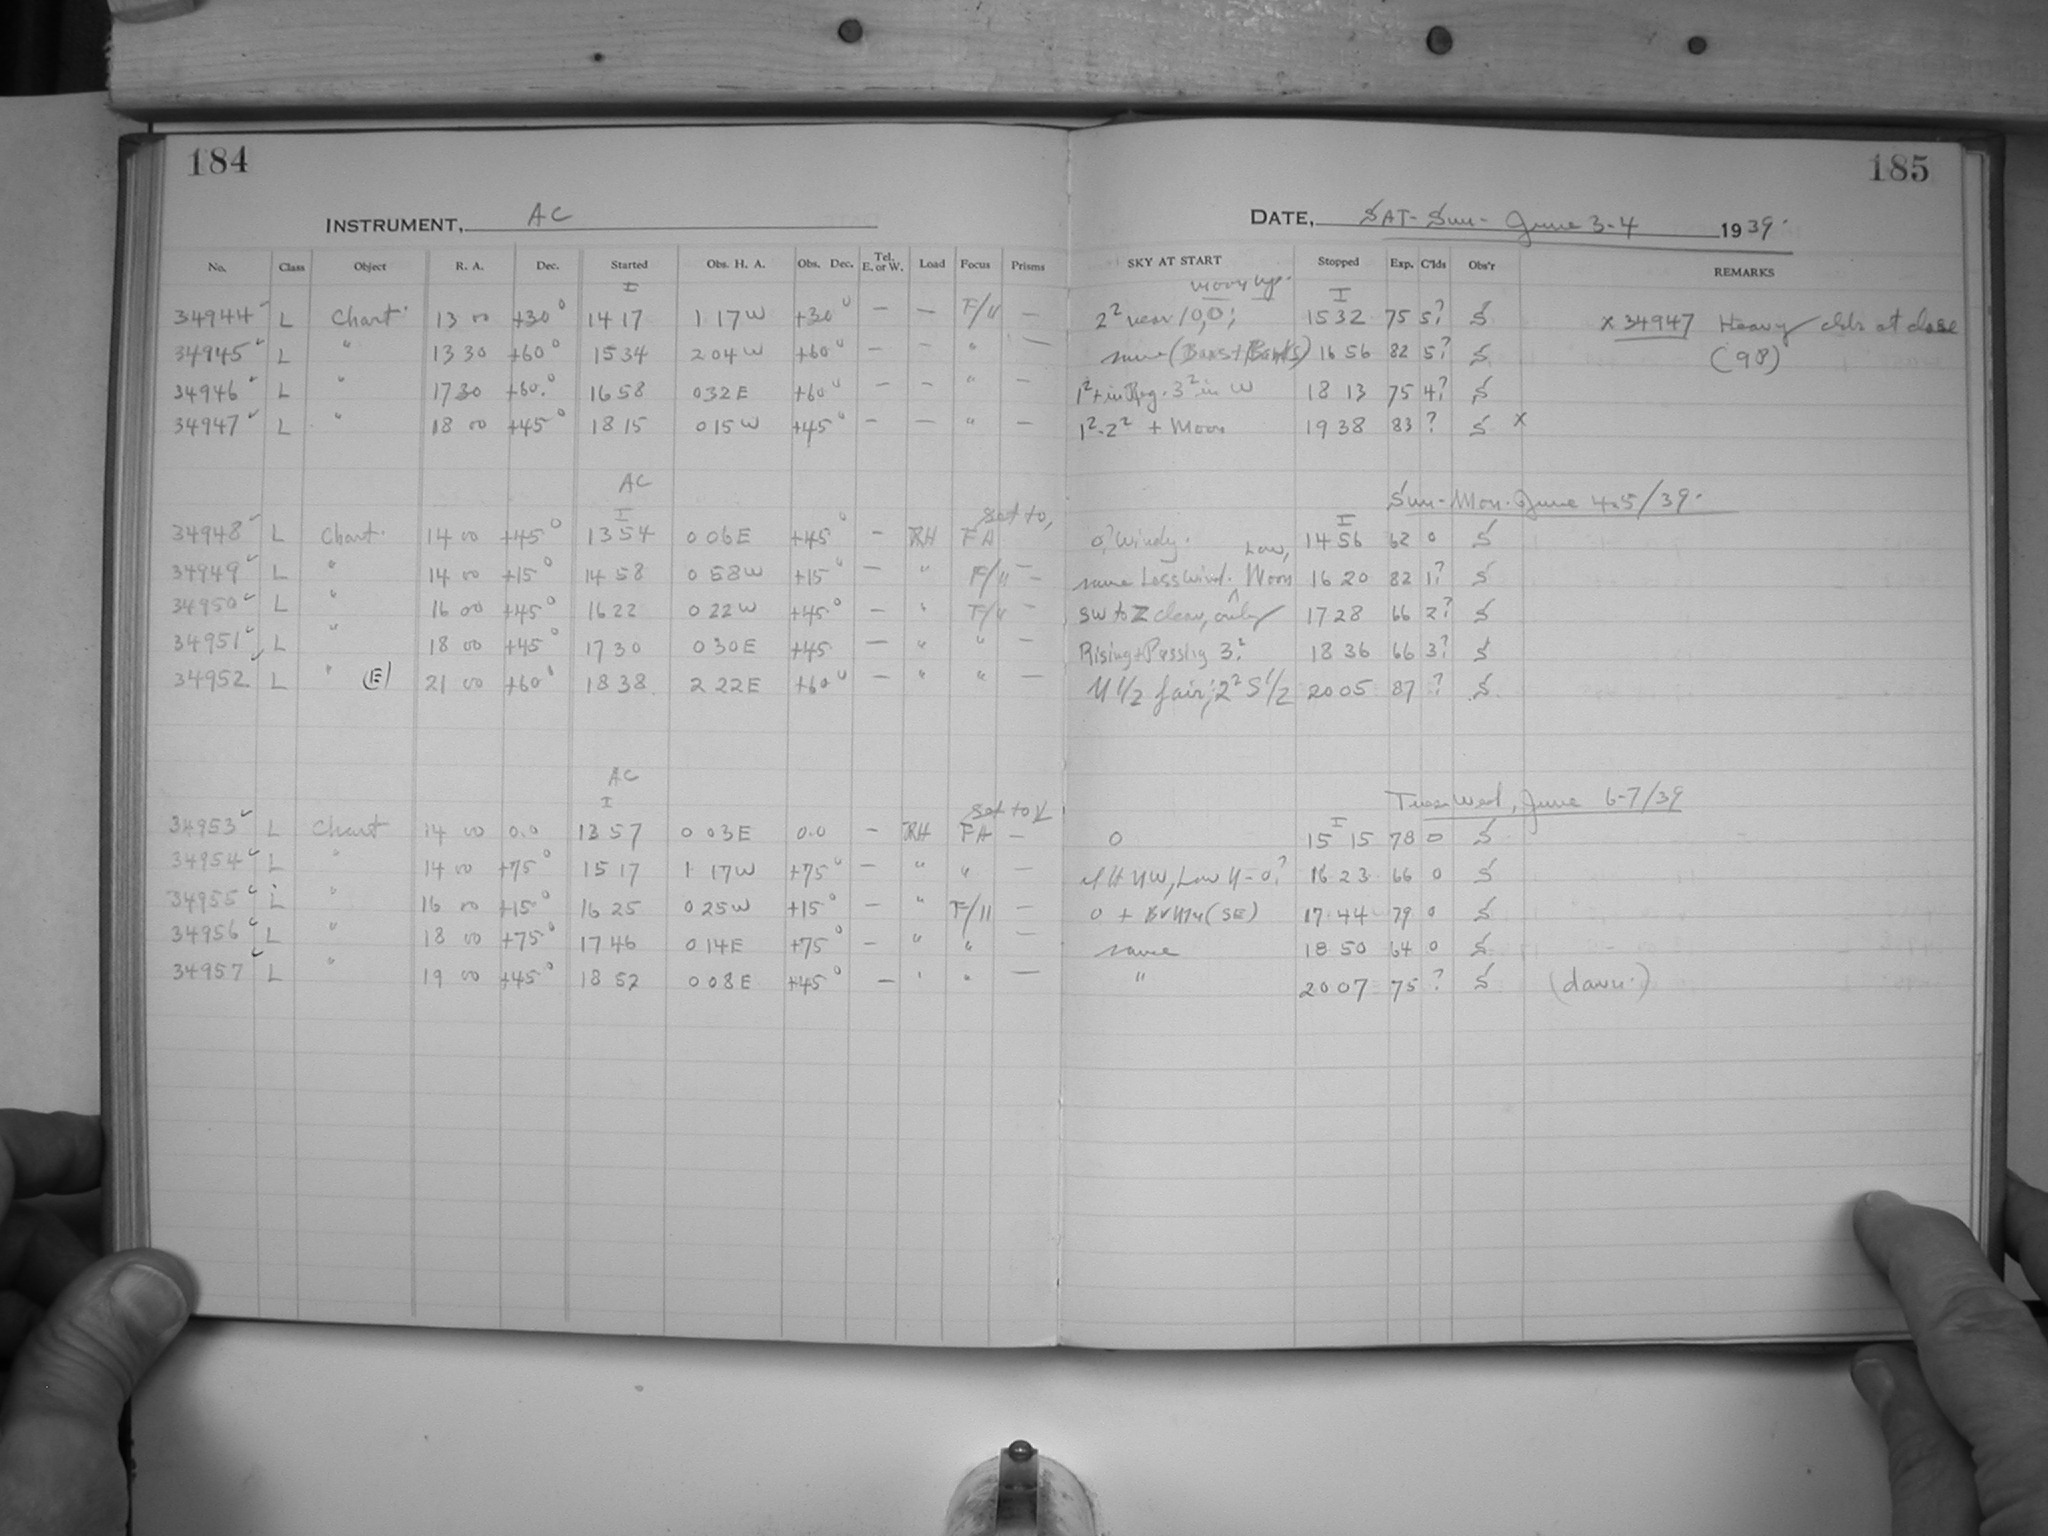 184
185
INSTRUMENT, AC
DATE, SAT-Sun- June 3-4 1939.
No. Class Object R. A. Dec. Started Obs. H. A. Obs. Dec. Tel. E. or W. Load Focus Prisms SKY AT START Stopped Exp. C'lds Obs'r REMARKS
I moon up. I
34944 L Chart 13 00 +30° 14 17 1 17 W +30° — — F/11 — 2² near 10,0; 15 32 75 5? S x 34947 Heavy clds at close
34945 L " 13 30 +60° 15 34 2 04 W +60° — — " — same 16 56 82 5? S (98)
34946 L " 17 30 +60° 16 58 0 32 E +60° — — " — 1²+ in 3² in W 18 13 75 4? S
34947 L " 18 00 +45° 18 15 0 15 W +45° — — " — 1²-2² + Moon 19 38 83 ? S x
AC Sun-Mon. June 4-5/39.
I set to, I
34948 L Chart. 14 00 +45° 13 54 0 06 E +45° — RH FA 0? Windy. 14 56 62 0 S
34949 L " 14 00 +15° 14 58 0 58 W +15° — " F/11 — same Less wind. Low, Moon 16 20 82 1? S
34950 L " 16 00 +45° 16 22 0 22 W +45° — " F/11 — SW to Z clear, only 17 28 66 2? S
34951 L " 18 00 +45° 17 30 0 30 E +45 — " " — Rising + Passing 3²? 18 36 66 3? S
34952 L " (E) 21 00 +60° 18 38 2 22 E +60° — " " — N 1/2 fair; 2² S 1/2 20 05 87 ? S
AC Tues-Wed, June 6-7/39
I set to V I
34953 L Chart 14 00 0.0 13 57 0 03 E 0.0 — RH FA — 0 15 15 78 0 S
34954 L " 14 00 +75° 15 17 1 17 W +75° — " " — NW, Low N - 0? 16 23 66 0 S
34955 L " 16 00 +15° 16 25 0 25 W +15° — " F/11 — 0 + (SE) 17 44 79 0 S
34956 L " 18 00 +75° 17 46 0 14 E +75° — " " — same 18 50 64 0 S
34957 L " 19 00 +45° 18 52 0 08 E +45° — " " — " 20 07 75 ? S (dawn.)